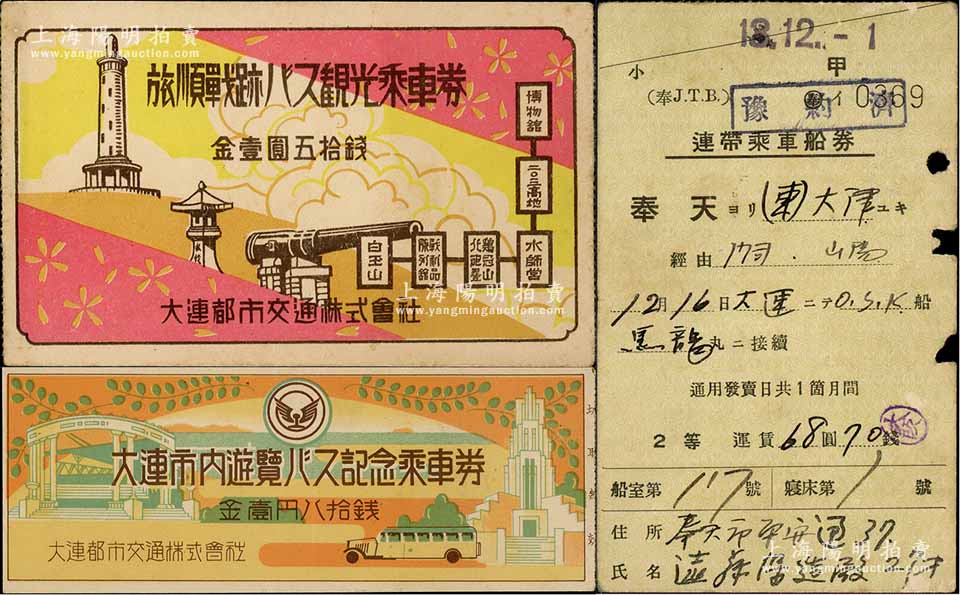 上海陽明拍賣
www.yangmingauction.com
旅順戰跡バス観光乗車券
金壹圓五拾錢
博物舘
二〇三高地
水師営
鶏冠山
北砲壘
戦利品
陳列舘
白玉山
大連都市交通株式會社
上海陽明拍賣
www.yangmingauction.com
大連市内遊覽バス記念乗車券
金壹円八拾銭
大連都市交通株式會社
13.12.-1
小 甲
(奉J.T.B.) イ 0369
豫約濟
連帶乘車船券
奉天ヨリ(東)大津ユキ
經由 門司 山陽
12月16日大連ニテO.S.K船
丸ニ接續
通用發賣日共1箇月間
2等 運賃68圓70錢
船室第117號 寢床第1號
住所 奉天市平安通37
氏名
上海陽明拍賣
www.yangmingauction.com